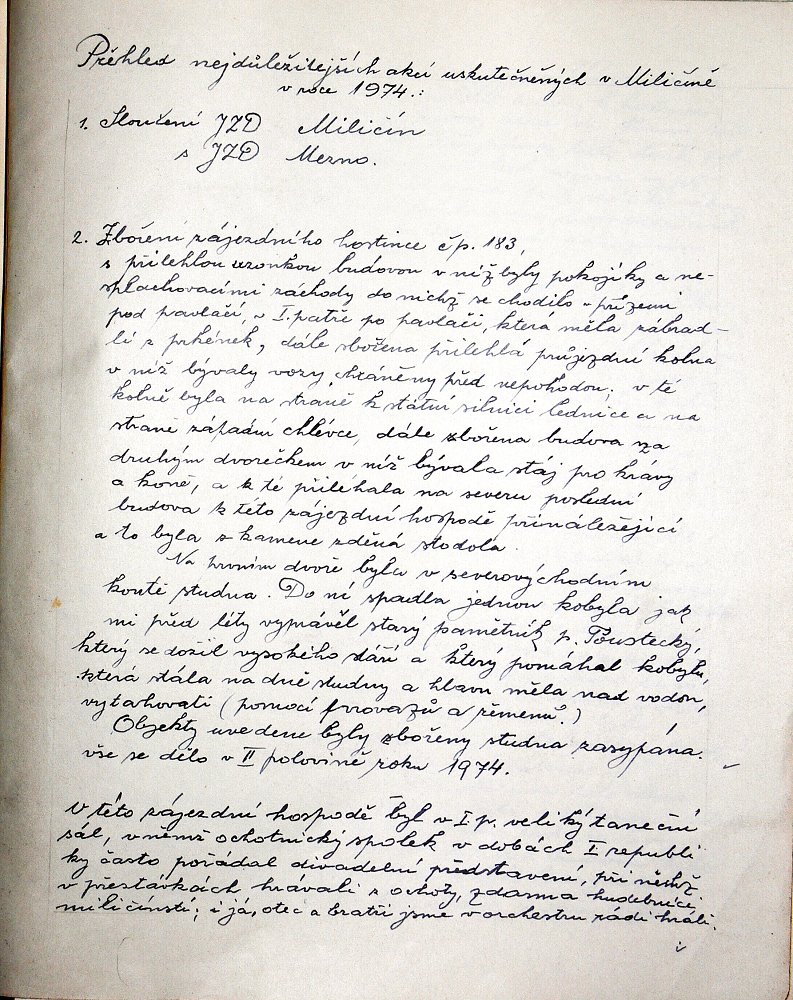 Přehled nejdůležitějších akcí uskutečněných v Miličíně
v roce 1974.:
1. Sloučení JZD Miličín
s JZD Mezno.
2. Zboření zájezdního hostince čp. 183,
s přilehlou vzonkou budovou v níž byly pokojíky a ne-
splachovacími záchody do nichž se chodilo v přízemí
pod pavlačí, v I. patře po pavlači, která měla zábrad-
lí z prkének, dále zbořena přilehlá průjezdní kolna
v níž bývaly vozy chráněny před nepohodou; v té
kolně byla na straně k státní silnici lednice a na
straně západní chlévce, dále zbořena budova za
druhým dvorečkem v níž bývala stáj pro krávy
a koně, a k té přiléhala na severu poslední
budova k této zájezdní hospodě přináležející
a to byla z kamene zděná stodola.
Na prvním dvoře byla v severovýchodním
koutě studna. Do ní spadla jednou kobyla jak
mi před léty vyprávěl starý pamětník p. Toustecký,
který se dožil vysokého stáří a který pomáhal kobylu,
která stála na dně studny a hlavu měla nad vodou,
vytahovati (pomocí provazů a řemenů.)
Objekty uvedene byly zbořeny studna zasypána.
vše se dělo v II polovině roku 1974.
V této zájezdní hospodě byl v I. p. veliký taneční
sál, v němž ochotnický spolek v dobách I republi
ky často pořádal divadelní představení, při nichž
v přestávkách hrávali z ochoty, zdarma hudebníci
miličínstí; i já, otec a bratři jsme v orchestru rádi hráli.